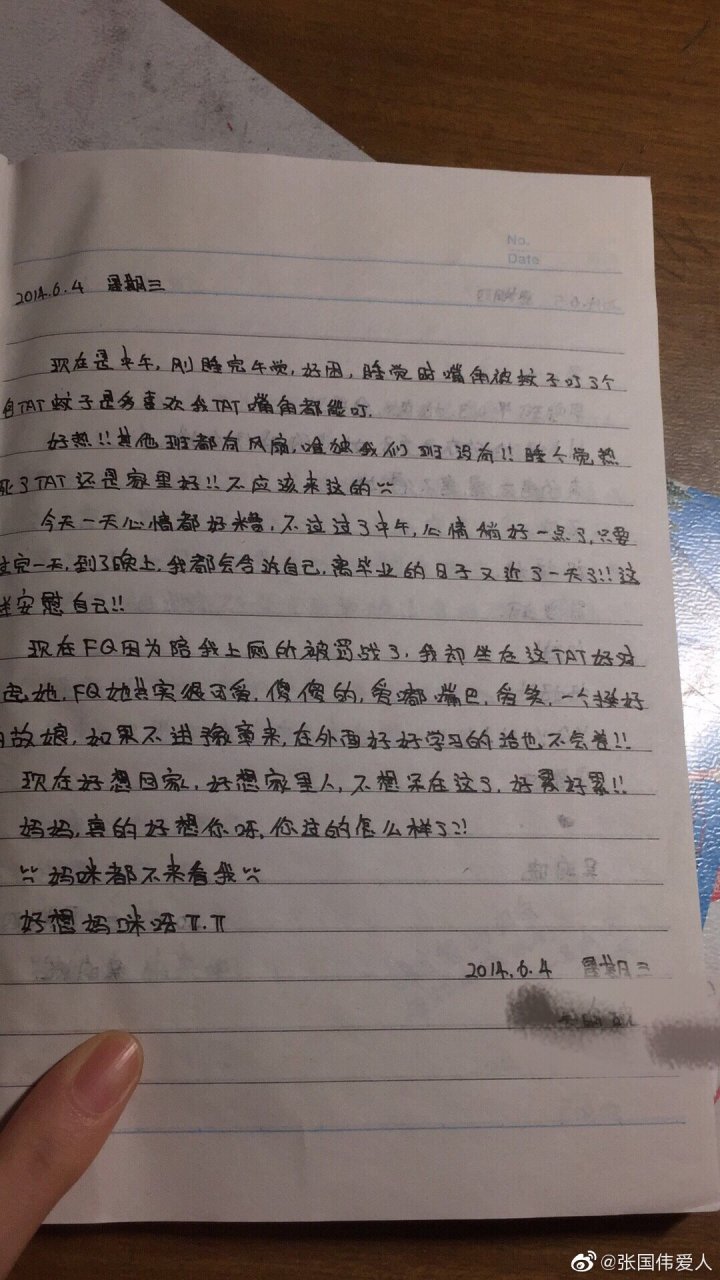 No.
Date
2014.6.4 星期三
现在是中午,刚睡完午觉,好困,睡觉时嘴角被蚊子叮了个
包TAT 蚊子是多喜欢我TAT 嘴角都能叮.
好热!!其他班都有风扇,唯独我们班没有!!睡个觉热
死了TAT 还是家里好!!不应该来这的
今天一天心情都好糟,不过过了中午,心情稍好一点了,只要
过完一天,到了晚上,我都会告诉自己,离毕业的日子又近了一天了!!这
样安慰自己!!
现在FQ因为陪我上厕所被罚战了,我却坐在这TAT好对
起她,FQ她其实很可爱,傻傻的,爱嘟嘴巴,爱笑,一个挺好
故娘,如果不进豫章来,在外面好好学习的话也不会差!!
现在好想回家,好想家里人,不想呆在这了,好累好累!!
妈妈,真的好想你呀,你过的怎么样了?!
妈咪都不来看我
好想妈咪呀π.π
2014.6.4 星期三
@张国伟爱人